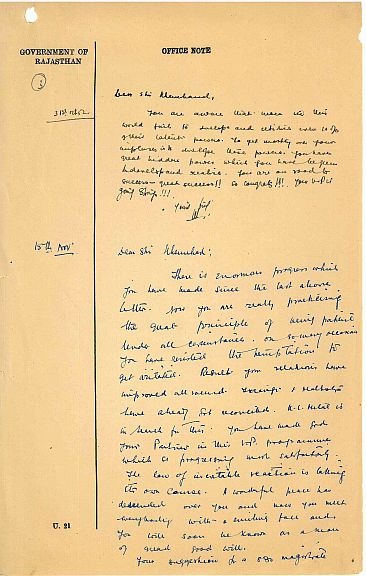 GOVERNMENT OF
RAJASTHAN
OFFICE NOTE
3
31st Oct 52
Dear Shri Khemchand,
You are aware that men in this
world fail to develop and utilise even 10%
of their latent powers. To get mastery over your
in develop these powers. You have
great hidden powers which you have begun
to develop and realise. You are on road to
success - great success!! So Congrats!!!
going strong!!!
Yours
15th Nov
Dear Shri Khemchand,
There is enormous progress which
you have made since the last above
letter. Now you are really practising
the great principle of being patient
under all circumstances. On so many occasions
you have resisted the temptation to
get irritated. Result your relations have
improved all round.
have already got reconciled. is
so much for this. You have made God
your Partner in this V.P. programme
which is progressing most satisfactorily.
The law of inevitable reaction is taking
its own course. A wonderful peace has
descended over you and now you meet
everybody with a smiling face and
you will soon be known as a man
of great good will.
Your suggestion of a SDO magistrate
U. 21